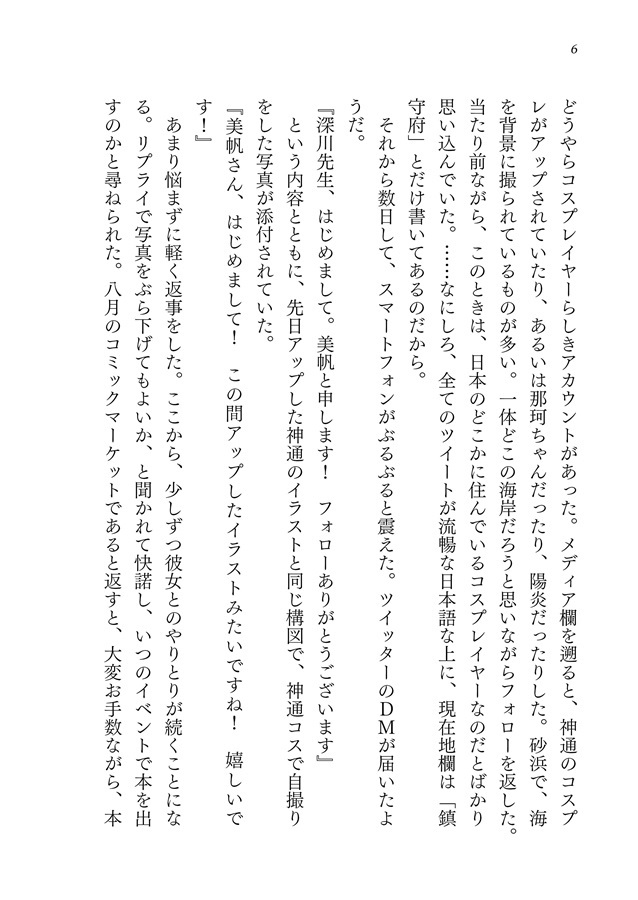 6
どうやらコスプレイヤーらしきアカウントがあった。メディア欄を遡ると、神通のコスプ
レがアップされていたり、あるいは那珂ちゃんだったり、陽炎だったりした。砂浜で、海
を背景に撮られているものが多い。一体どこの海岸だろうと思いながらフォローを返した。
当たり前ながら、このときは、日本のどこかに住んでいるコスプレイヤーなのだとばかり
思い込んでいた。……なにしろ、全てのツイートが流暢な日本語な上に、現在地欄は「鎮
守府」とだけ書いてあるのだから。
　それから数日して、スマートフォンがぶるぶると震えた。ツイッターのＤＭが届いたよ
うだ。
『深川先生、はじめまして。美帆と申します！　フォローありがとうございます』
　という内容とともに、先日アップした神通のイラストと同じ構図で、神通コスで自撮り
をした写真が添付されていた。
『美帆さん、はじめまして！　この間アップしたイラストみたいですね！　嬉しいで
す！』
　あまり悩まずに軽く返事をした。ここから、少しずつ彼女とのやりとりが続くことにな
る。リプライで写真をぶら下げてもよいか、と聞かれて快諾し、いつのイベントで本を出
すのかと尋ねられた。八月のコミックマーケットであると返すと、大変お手数ながら、本